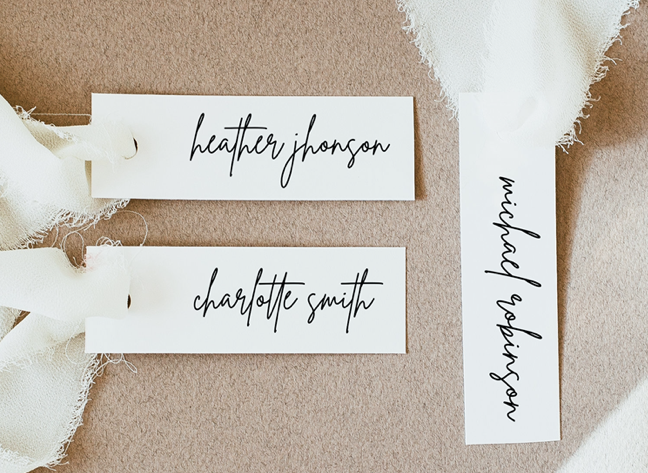 heather jhonson
charlotte smith
michael robinson